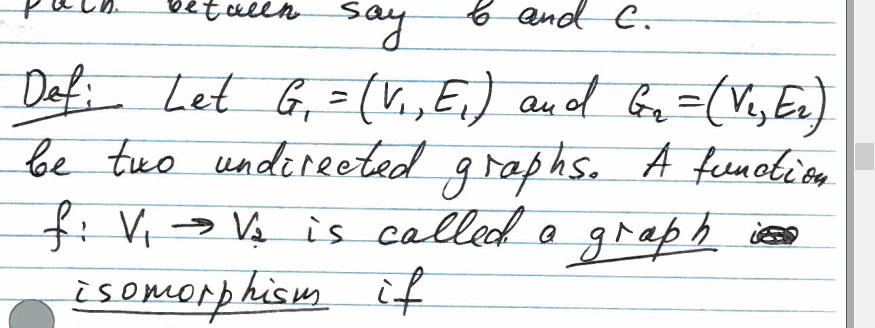 path between say b and c.
Def: Let G₁ = (V₁, E₁) and G₂ = (V₂, E₂)
be two undirected graphs. A function
f: V₁ → V₂ is called a graph
isomorphism if